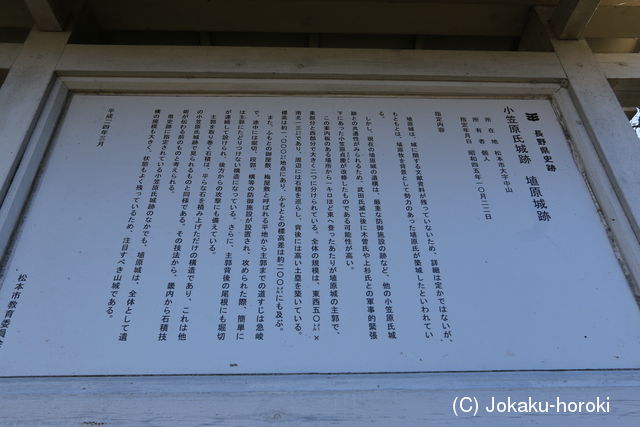 長野県史跡
小笠原氏城跡 埴原城跡
所在地 松本市大字中山
所有者 個人
指定年月日 昭和四五年一〇月二二日
指定内容
埴原城は、城に関する文献資料が残っていないため、詳細は定かではないが、
もともとは、埴原牧を背景として勢力のあった埴原氏が築城したといわれてい
る。
しかし、現在の埴原城の遺構は、厳重な防御施設の跡など、他の小笠原氏城
跡との共通性がみられるため、武田氏滅亡後に木曽氏や上杉氏との軍事的緊張
下にあった小笠原貞慶が改修したものである可能性が高い。
この案内板のある場所から一キロほど東へ登ったあたりが埴原城の主郭で、
東部分と西部分で大きく二つに分けられている。全体の規模は、東西五〇㍍×
南北一三㍍であり、周辺には石積を巡らし、背後には高い土塁を築いている。
標高は約一〇〇〇㍍地点にあり、ふもととの標高差は約二〇〇㍍にも及ぶ。
また、ふもとの御屋敷、梅屋敷と呼ばれる平地から主郭までの道すじは急峻
で、途中には堀切、段郭、横等の防御施設が設置され、攻められた際、簡単に
は主郭にたどりつけない構造になっている。さらに、主郭背後の尾根にも堀切
が連続して設けられ、後方からの攻撃にも備えている。
主郭を取り巻く石積は、平らな石を積み上げただけの構造であり、これは他
の小笠原氏城跡で見られるものと同様である。その技法から、畿内から石積技
術が伝わる前のものと考えられる。
県史跡に指定されている小笠原氏城跡のなかでも、埴原城は、全体として遺
構の規模も大きく、状態もよく残っているため、注目すべき山城である。
平成二四年三月
松本市教育委員会
(C) Jokaku-horoki